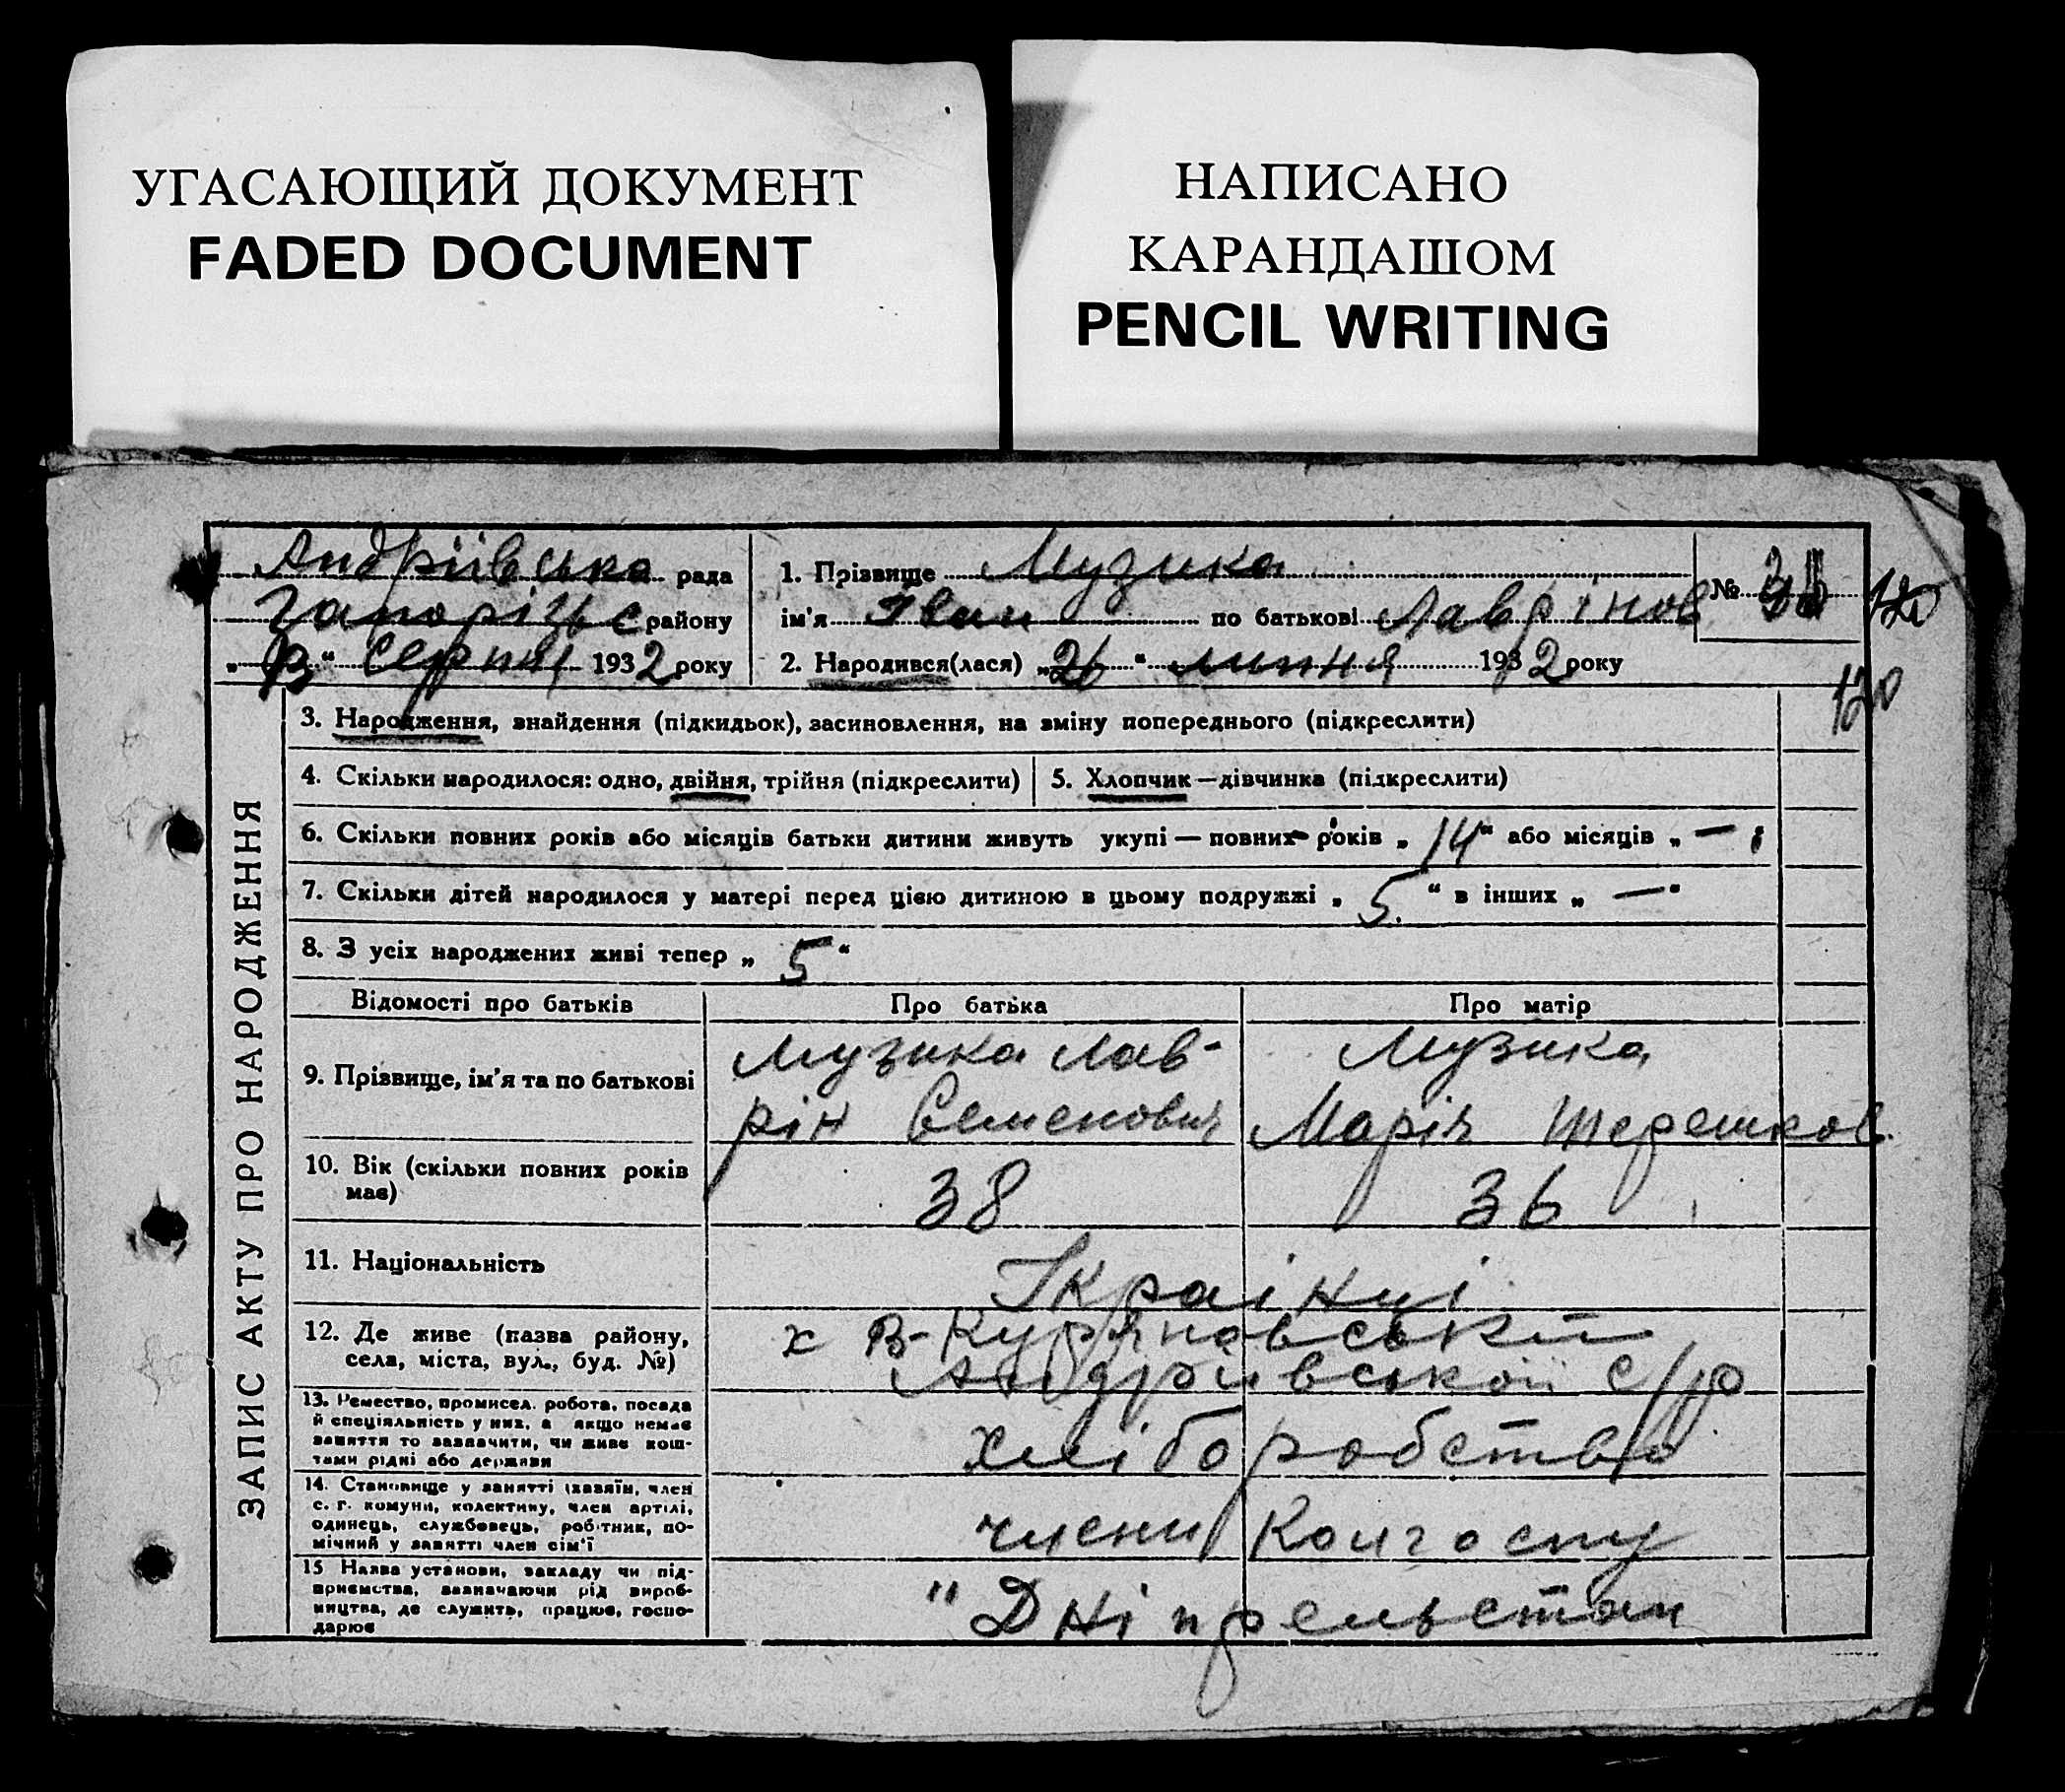 УГАСАЮЩИЙ ДОКУМЕНТ
FADED DOCUMENT
НАПИСАНО
КАРАНДАШОМ
PENCIL WRITING
Андріївська рада
Запорізьк району
„ “ Серпня 1932 року
1. Прізвище Музика
ім'я Іван по батькові Лаврінов
2. Народився(лася) „26“ липня 1932 року
№
120
120
ЗАПИС АКТУ ПРО НАРОДЖЕННЯ
3. Народження, знайдення (підкидьок), засиновлення, на зміну попереднього (підкреслити)
4. Скільки народилося: одно, двійня, трійня (підкреслити)
5. Хлопчик—дівчинка (підкреслити)
6. Скільки повних років або місяців батьки дитини живуть укупі — повних років „ 14 “ або місяців „ —
7. Скільки дітей народилося у матері перед цією дитиною в цьому подружжі „ 5. “ в інших „ — “
8. З усіх народжених живі тепер „ 5 “
Відомості про батьків
Про батька
Про матір
9. Прізвище, ім'я та по батькові
Музика Лав-
рін Семенович
Музика
Марія Терешков.
10. Вік (скільки повних років
має)
38
36
11. Національність
Українці
12. Де живе (назва району,
села, міста, вул., буд. №)
х В-Куряновський
Андріївської с/р
13. Ремество, промисел. робота, посада
й спеціяльність у них, а якщо немає
заняття то зазначити, чи живе кош-
тами рідні або держави
хліборобство
14. Становище у занятті (хазяїн, член
с. г. комуни, колективу, член артілі,
одинець, службовець, робітник, по-
мічний у занятті член сім'ї
члени Колгоспу
15 Назва установи, закладу чи під-
приємства, зазначаючи рід вироб-
ництва, де служить, працює, госпо-
дарює
"Дніпрельстан